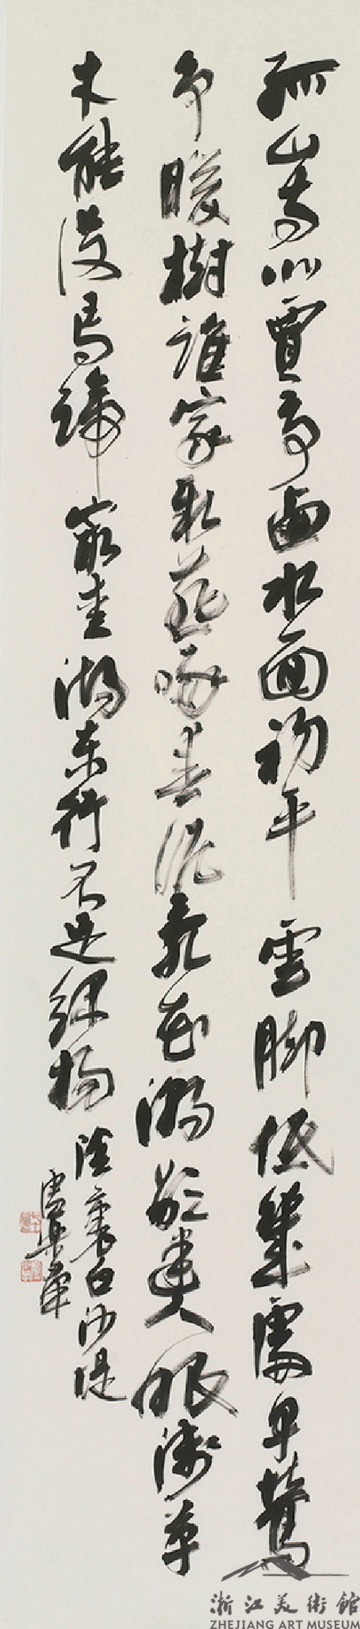 孤山寺北賈亭西水面初平雲脚低幾處早鶯
爭暖樹誰家新燕啄春泥亂花漸欲迷人眼淺草
才能沒馬蹄最愛湖東行不足綠楊陰裏白沙堤
浙江美術館
ZHEJIANG ART MUSEUM